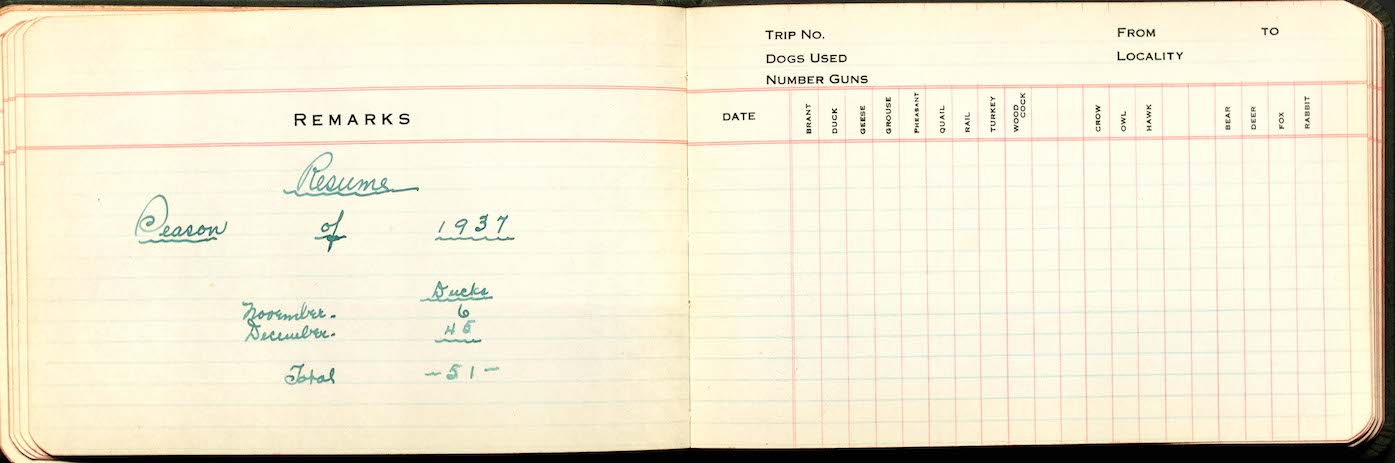 REMARKS
Resume
Season of 1937
Ducks
November. 6
December. 45
Total -51-
TRIP NO. FROM TO
DOGS USED LOCALITY
NUMBER GUNS
DATE BRANT DUCK GEESE GROUSE PHEASANT QUAIL RAIL TURKEY WOOD COCK CROW OWL HAWK BEAR DEER FOX RABBIT